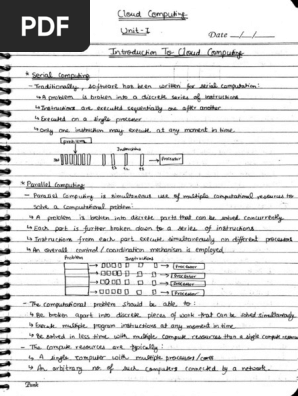 PDF
Cloud Computing
Unit-I
Date __/__/__
Introduction To Cloud Computing
* Serial Computing
- Traditionally, software has been written for serial computation:
↳ A problem is broken into a discrete series of instructions
↳ Instructions are executed sequentially one after another
↳ Executed on a single processor
↳ Only one instruction may execute at any moment in time.
problem
Instructions
Processor
* Parallel Computing
- Parallel Computing is simultaneous use of multiple computational resources to
solve a computational problem:
↳ A problem is broken into discrete parts that can be solved concurrently
↳ Each part is further broken down to a series of instructions
↳ Instructions from each part execute simultaneously on different processors
↳ An overall control / coordination mechanism is employed
Problem Instructions
Processor
Processor
Processor
Processor
- The computational problem should be able to:
↳ Be broken apart into discrete pieces of work that can be solved simultaneously
↳ Execute multiple program instructions at any moment in time
↳ Be solved in less time with multiple compute resources than a single compute resource
- The compute resources are typically:
↳ A single computer with multiple processors/cores
↳ An arbitrary no. of such computers connected by a network.